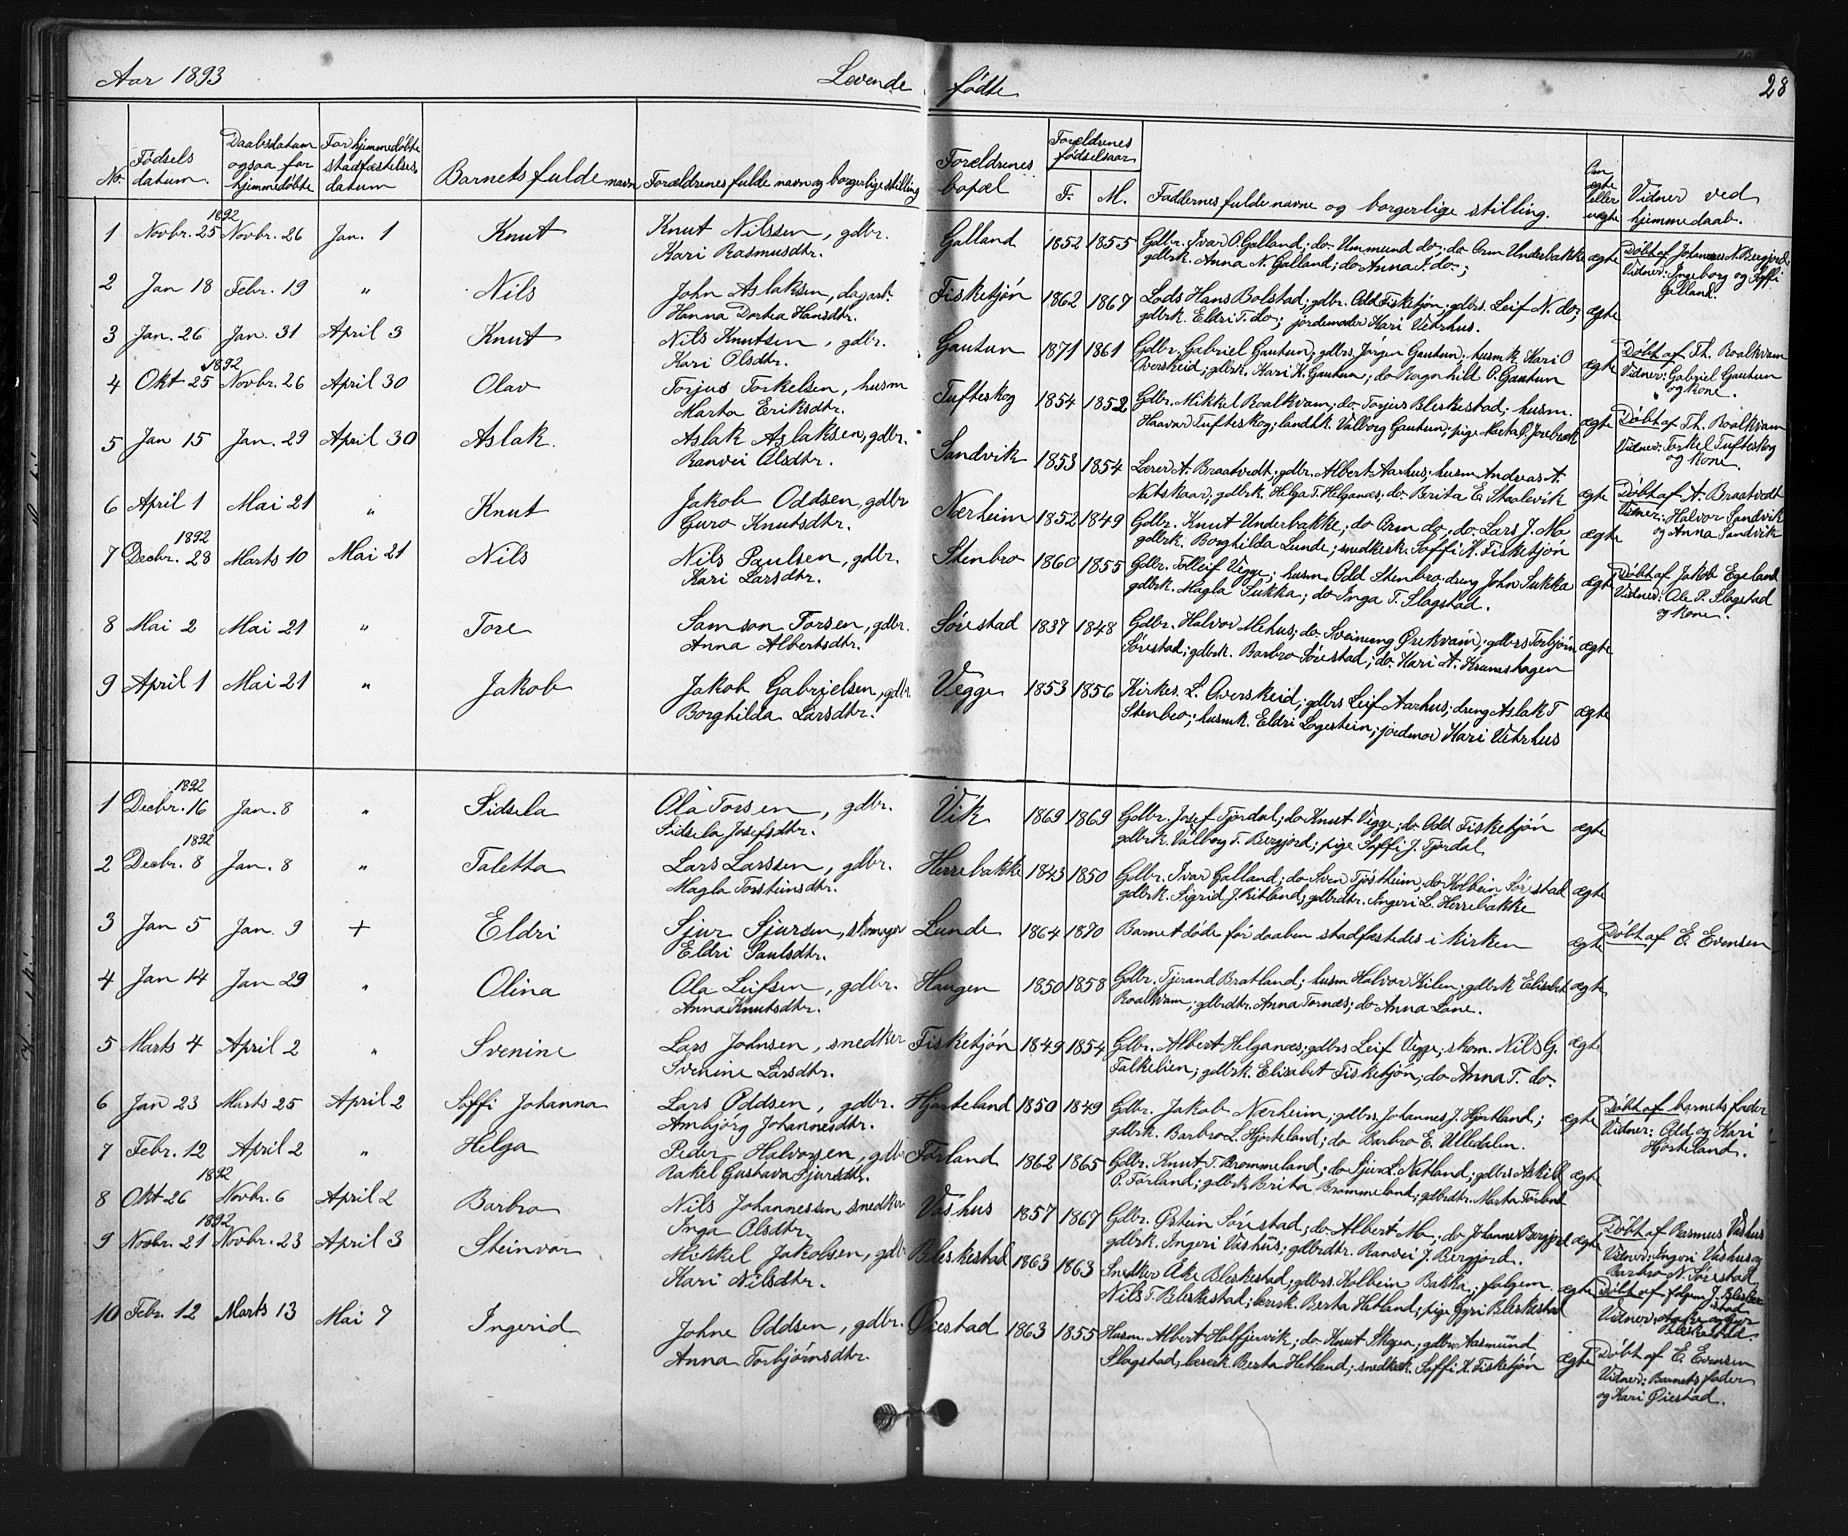 Aar 1893 Levende fødte 28
No. Fødsels datum. Daabsdatum ogsaa for hjemmedøbte For hjemmedøbte stadfæstelses datum Barnets fulde navn Forældrenes fulde navn og borgerlige stilling Forældrenes bopæl Forældrenes fødselsaar F. M. Faddernes fulde navne og borgerlige stilling. Om ægte eller uægte Vidner ved hjemmedaab.
1892
1 Novbr. 25 Novbr. 26 Jan. 1 Knut Knut Nilssen, gdbr. Galland 1852 1855 Gdbr. Ivar O. Galland; do. Ommund do; do Orm Underbakke ægte Døbt af Johannes N. Bergjord
Kari Rasmusdtr. gdbrk. Anna N. Galland; do Anna I. do.; Vidner: Ingeborg og Soffi
Galland.
2 Jan 18 Febr. 19 " Nils John Aslaksen, dagarb. Fisketjøn 1862 1867 Lods Hans Bolstad; gdbr. Odd Fisketjøn; gdbrs. Leif N. do; ægte
Hanna Dortea Hansdtr. gdbrk. Eldri T. do; jordemoder Kari Vetrhus.
3 Jan. 26 Jan. 31 April 3 Knut Nils Knutsen, gdbr. Gautun 1871 1861 Gdbr. Gabriel Gautun; gdbrs. Jørgen Gautun; husmk. Kari O ægte Døbt af Th. Roalkvam
Kari Olsdtr. Overskeid; gdbrk. Kari K. Gautun; do Ragnhild O. Gautun Vidner: Gabriel Gautun
og kone.
1892
4 Okt 25 Novbr. 26 April 30 Olav Torjus Torkelsen, husm Tufteskog 1854 1852 Gdbr. Mikkel Roalkvam; do. Torjus Bleskestad; husm. ægte Døbt af Th. Roalkvam
Marta Eriksdtr. Haavar Tufteskog; landhk. Valborg Gautun; pige Marta O. Jovebrek Vidner: Torkel Tufteskog
og kone.
5 Jan 15 Jan. 29 April 30 Aslak Aslak Aslaksen, gdbr. Sandvik 1853 1854 Lærer A. Braatvedt; gdbr. Albert Aarhus; husm Andreas A. ægte Døbt af A. Braatvedt
Ranvei Olsdtr. Natskaar; gdbrk. Helga T. Helganæs; do. Brita E. Staalevik Vidner: Halvor Sandvik
og Anna Sandvik
6 April 1 Mai 21 " Knut Jakob Oddsen, gdbr Nærheim 1852 1849 Gdbr. Knut Underbakke; do Orm do; do. Lars J. Mo ægte
Guro Knutsdtr. gdbrk. Borghilda Lunde; snedkerk. Soffi K. Fisketjøn
1892
7 Decbr. 28 Marts 10 Mai 21 Nils Nils Paulsen, gdbr. Stenbro 1860 1855 Gdbr. Tolleif Vegge; husm. Odd Stenbro; dreng John Sukka ægte Døbt af Jakob Egeland
Kari Larsdtr. gdbrk. Magla Sukka; do Inga T. Slagstad. Vidner: Ole P. Slagstad
og kone.
8 Mai 2 Mai 21 " Tore Samson Torsen, gdbr. Sørestad 1837 1848 Gdbr. Halvor Mehus; do. Sveinung Ørekvam; gdbrs Torbjørn ægte
Anna Albertsdtr. Sørestad; gdbrk. Barbro Sørestad; do. Kari A. Krumshagen
9 April 1 Mai 21 " Jakob Jakob Gabrielsen, gdbr Vegge 1853 1856 Kirkes. L. Overskeid; gdbrs Leif Aarhus; dreng Aslak T ægte
Borghilda Larsdtr. Stenbro; husmk. Eldri Løgestein; jordmor Kari Vetrhus
1892
1 Decbr. 16 Jan. 8 " Sidsela Ola Torsen, gdbr. Vik 1869 1869 Gdbr. Josef Tjordal; do Knut Vegge; do Odd Fisketjøn ægte
Sidsela Josefsdtr. gdbrk. Valborg T. Bergjord; pige Soffi J. Tjordal
1892
2 Decbr. 8 Jan. 8 " Taletta Lars Larssen, gdbr. Herrebakke 1843 1850 Gdbr. Ivar Galland; do Sven Tjøstheim; do Kolbein Sørestad ægte
Magla Torsteinsdtr. gdbrk. Sigrid J. Ritland; gdbrdtr. Ingeri L. Herrebakke
3 Jan 5 Jan. 9 + Eldri Sjur Sjursen, skomager Lunde 1864 1870 Barnet døde før daaben stadfæstedes i kirken ægte Døbt af E. Evensen
Eldri Paulsdtr.
4 Jan 14 Jan 29 " Olina Ola Leifsen, gdbr. Haugen 1850 1858 Gdbr. Tjerand Bratland; husm Halvor Kilen; gdbrk Elisabet ægte
Anna Knutsdtr. Roalkvam; gdbrdtr. Anna Tornæs; do Anna Lone.
5 Marts 4 April 2 " Svenine Lars Johnsen, snedker Fisketjøn 1849 1854 Gdbr. Albert Helganæs; gdbrs Leif Vegge; skom. Nils G. ægte
Svenine Larsdtr. Falkelien; gdbrk. Elisabet Fisketjøn; do Anna T. do.
6 Jan 23 Marts 25 April 2 Soffi Johanna Lars Oddsen, gdbr. Hjorteland 1850 1849 Gdbr. Jakob Nærheim; gdbrs Johannes J. Hjortland; ægte Døbt af barnets fader
Ambjørg Johannesdtr. gdbrk. Barbro L. Hjorteland; do Barbro E. Ulledalen. Vidner: Odd og Kari
Hjorteland.
7 Febr. 12 April 2 " Helga Peder Halvorsen, gdbr Førland 1862 1865 Gdbr. Knut T. Brommeland; do Sjur L. Natland; gdbrs Askild ægte
Rakel Gustava Sjursdtr. O. Førland; gdbrk Brita Brommeland; gdbrdtr. Marta Førland
1892
8 Okt 26 Novbr. 6 April 2 Barbro Nils Johannessen, snedker Vashus 1857 1867 Gdbr. Østein Sørestad; do. Albert Mo; do Johannes Bergjord ægte Døbt af Rasmus Vashus
Inga Olsdtr. gdbrk. Ingeri Vashus; gdbrdtr. Ranvei J. Bergjord. Vidner: Ingeri Vashus og
Barbro N. Sørestad
1892
9 Novbr. 21 Novbr. 23 April 3 Steinvor Mikkel Jakobsen, gdbr Bleskestad 1863 1863 Snedker Ake Bleskestad; gdbrs. Kolbein Bakka; folgem. ægte Døbt af folgem J. Bleskestad
Kari Nilsdtr. Nils T. Bleskestad; lærerk. Berta Hetland; pige Gyri Bleskestad Vidner: Aake og Gyri
Bleskestad.
10 Febr. 12 Marts 13 Mai 7 Ingerid Johne Oddsen, gdbr. Øiestad 1863 1855 Husm. Albert Halfjervik; do. Knut Skeen; gdbrs Aasmund ægte Døbt af E. Evensen
Anna Torbjørnsdtr. Slagstad; lærerk Berta Hetland; snedkerk. Soffi K. Fisketjøn Vidner: Barnets fader
og Kari Øiestad.